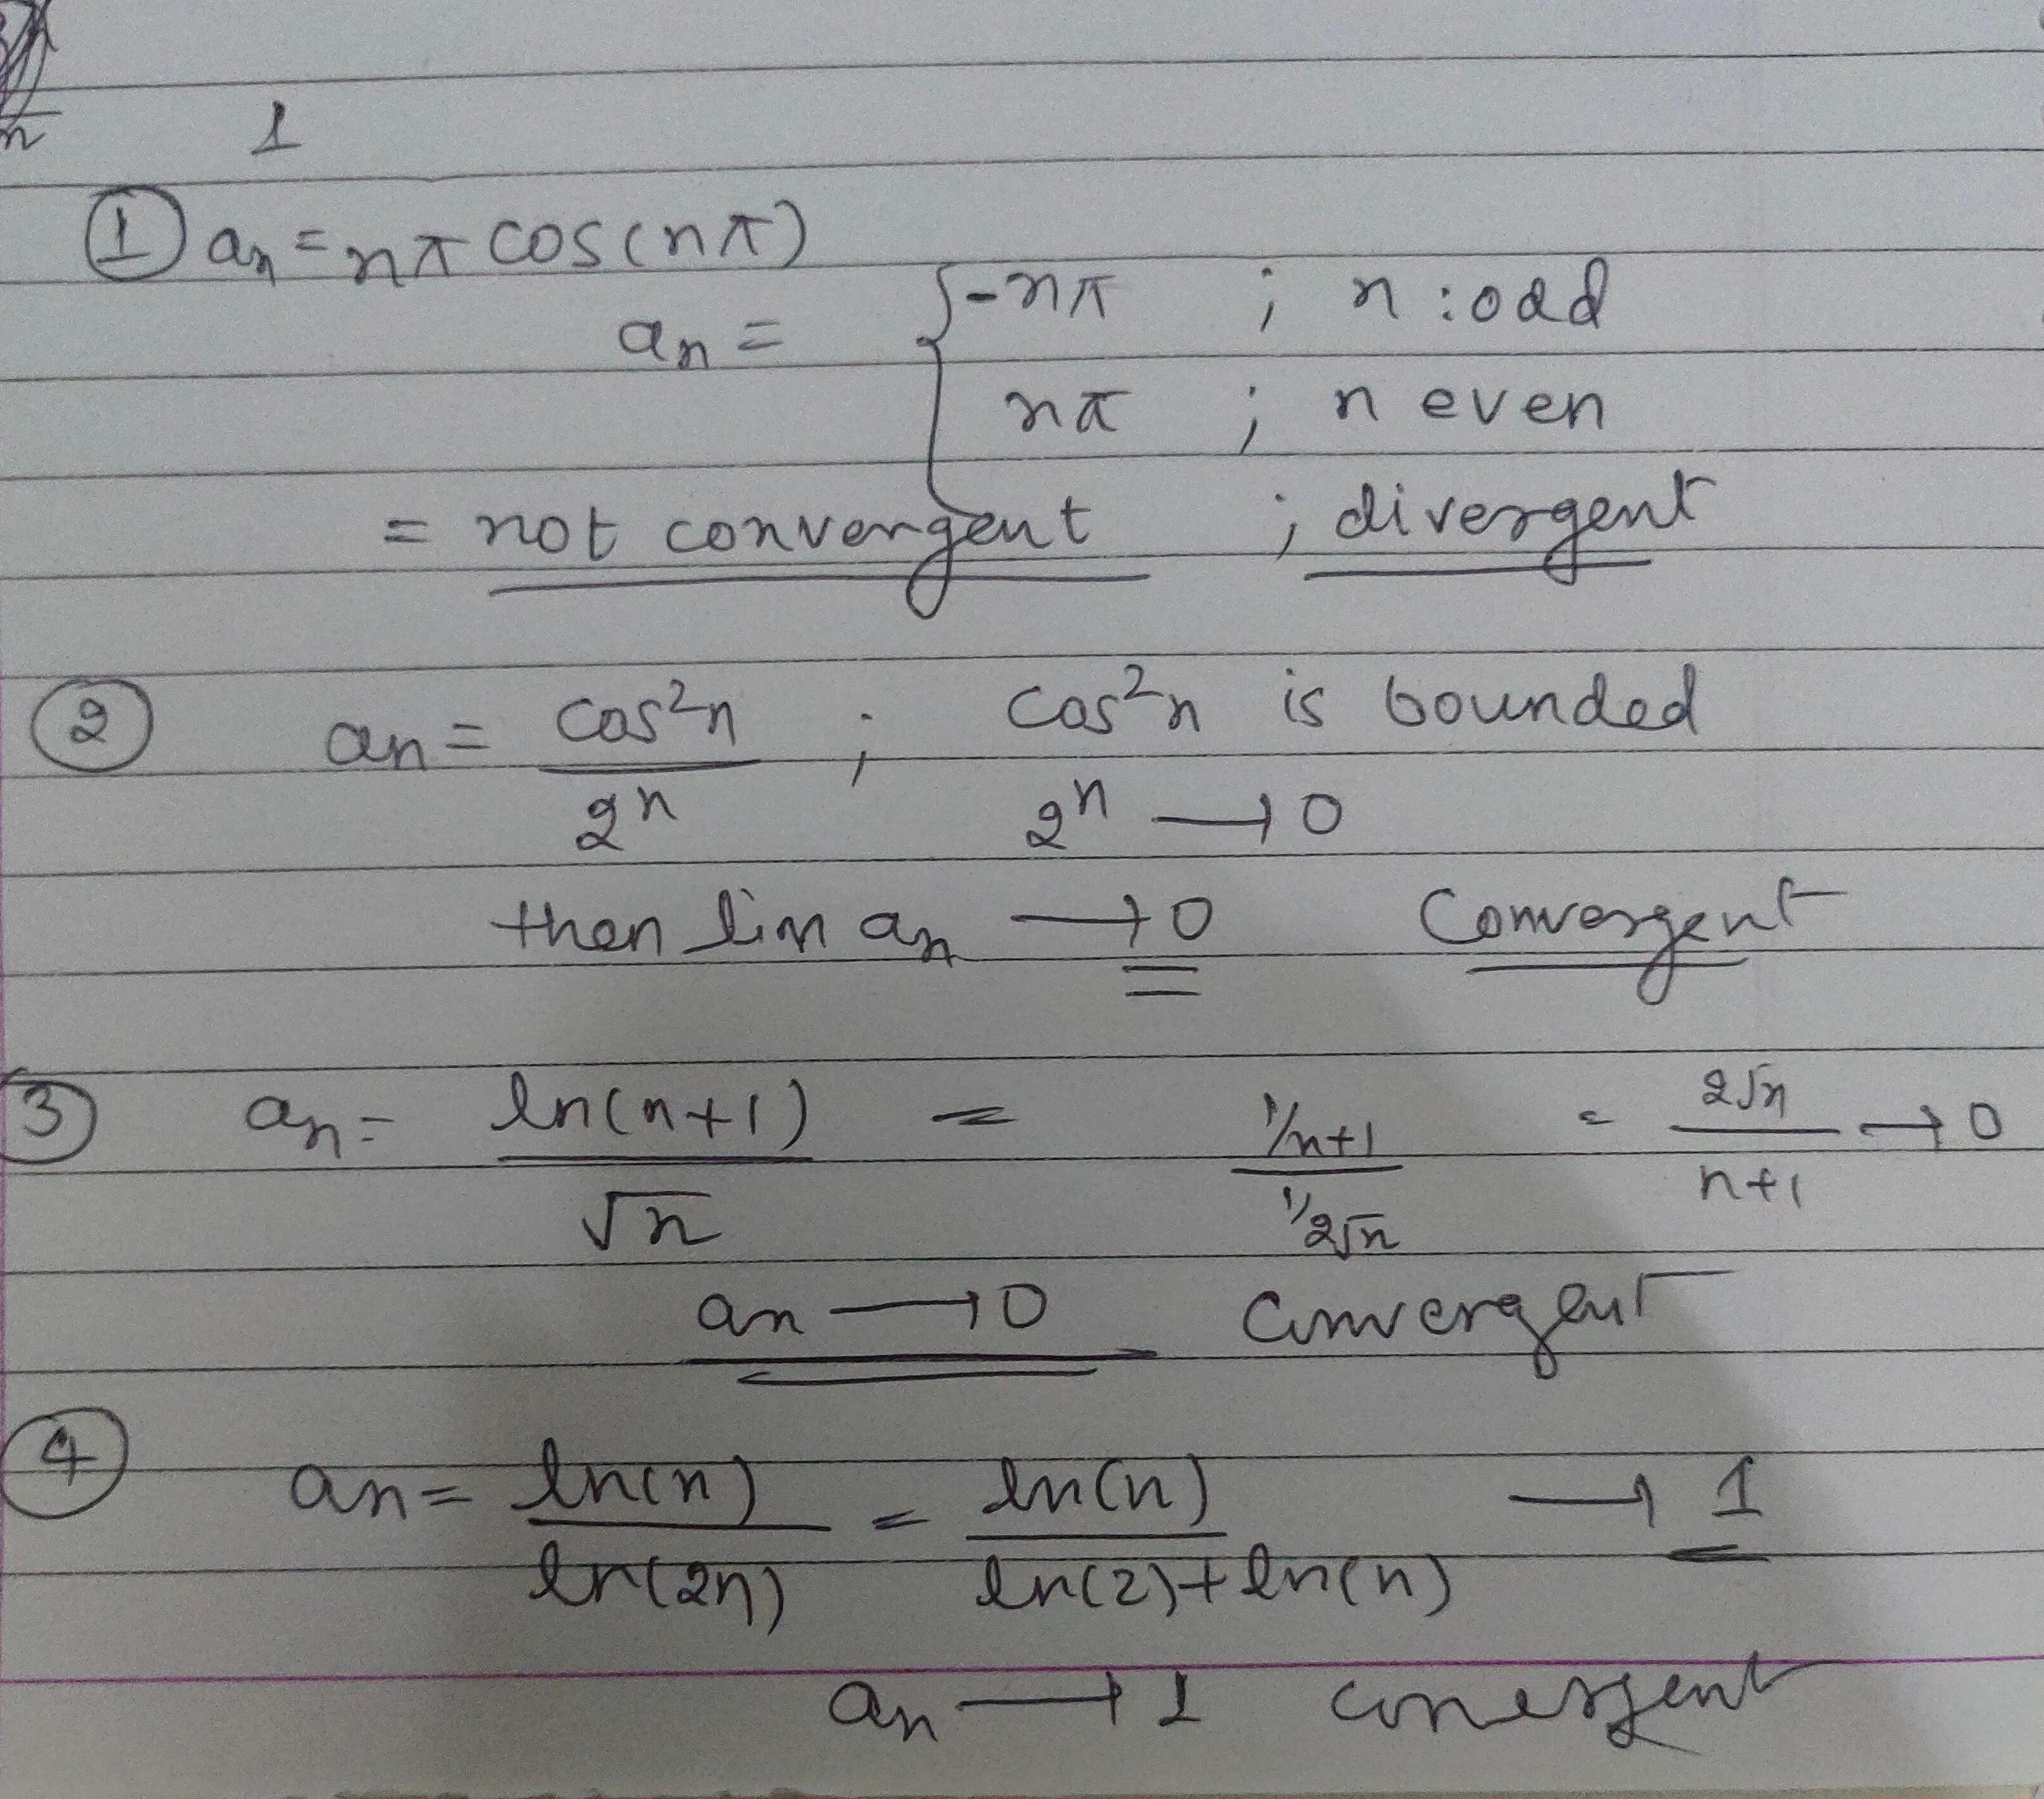 n 1
① an = nπ cos(nπ)
an = { -nπ ; n : odd
nπ ; n even
= not convergent ; divergent
② an = cos²n / 2ⁿ ; cos²n is bounded
2ⁿ → 0
then lim an → 0 Convergent
③ an = ln(n+1) / √n = (1/n+1) / (1/2√n) = 2√n / n+1 → 0
an → 0 Convergent
④ an = ln(n) / ln(2n) = ln(n) / ln(2)+ln(n) → 1
an → 1 conergent